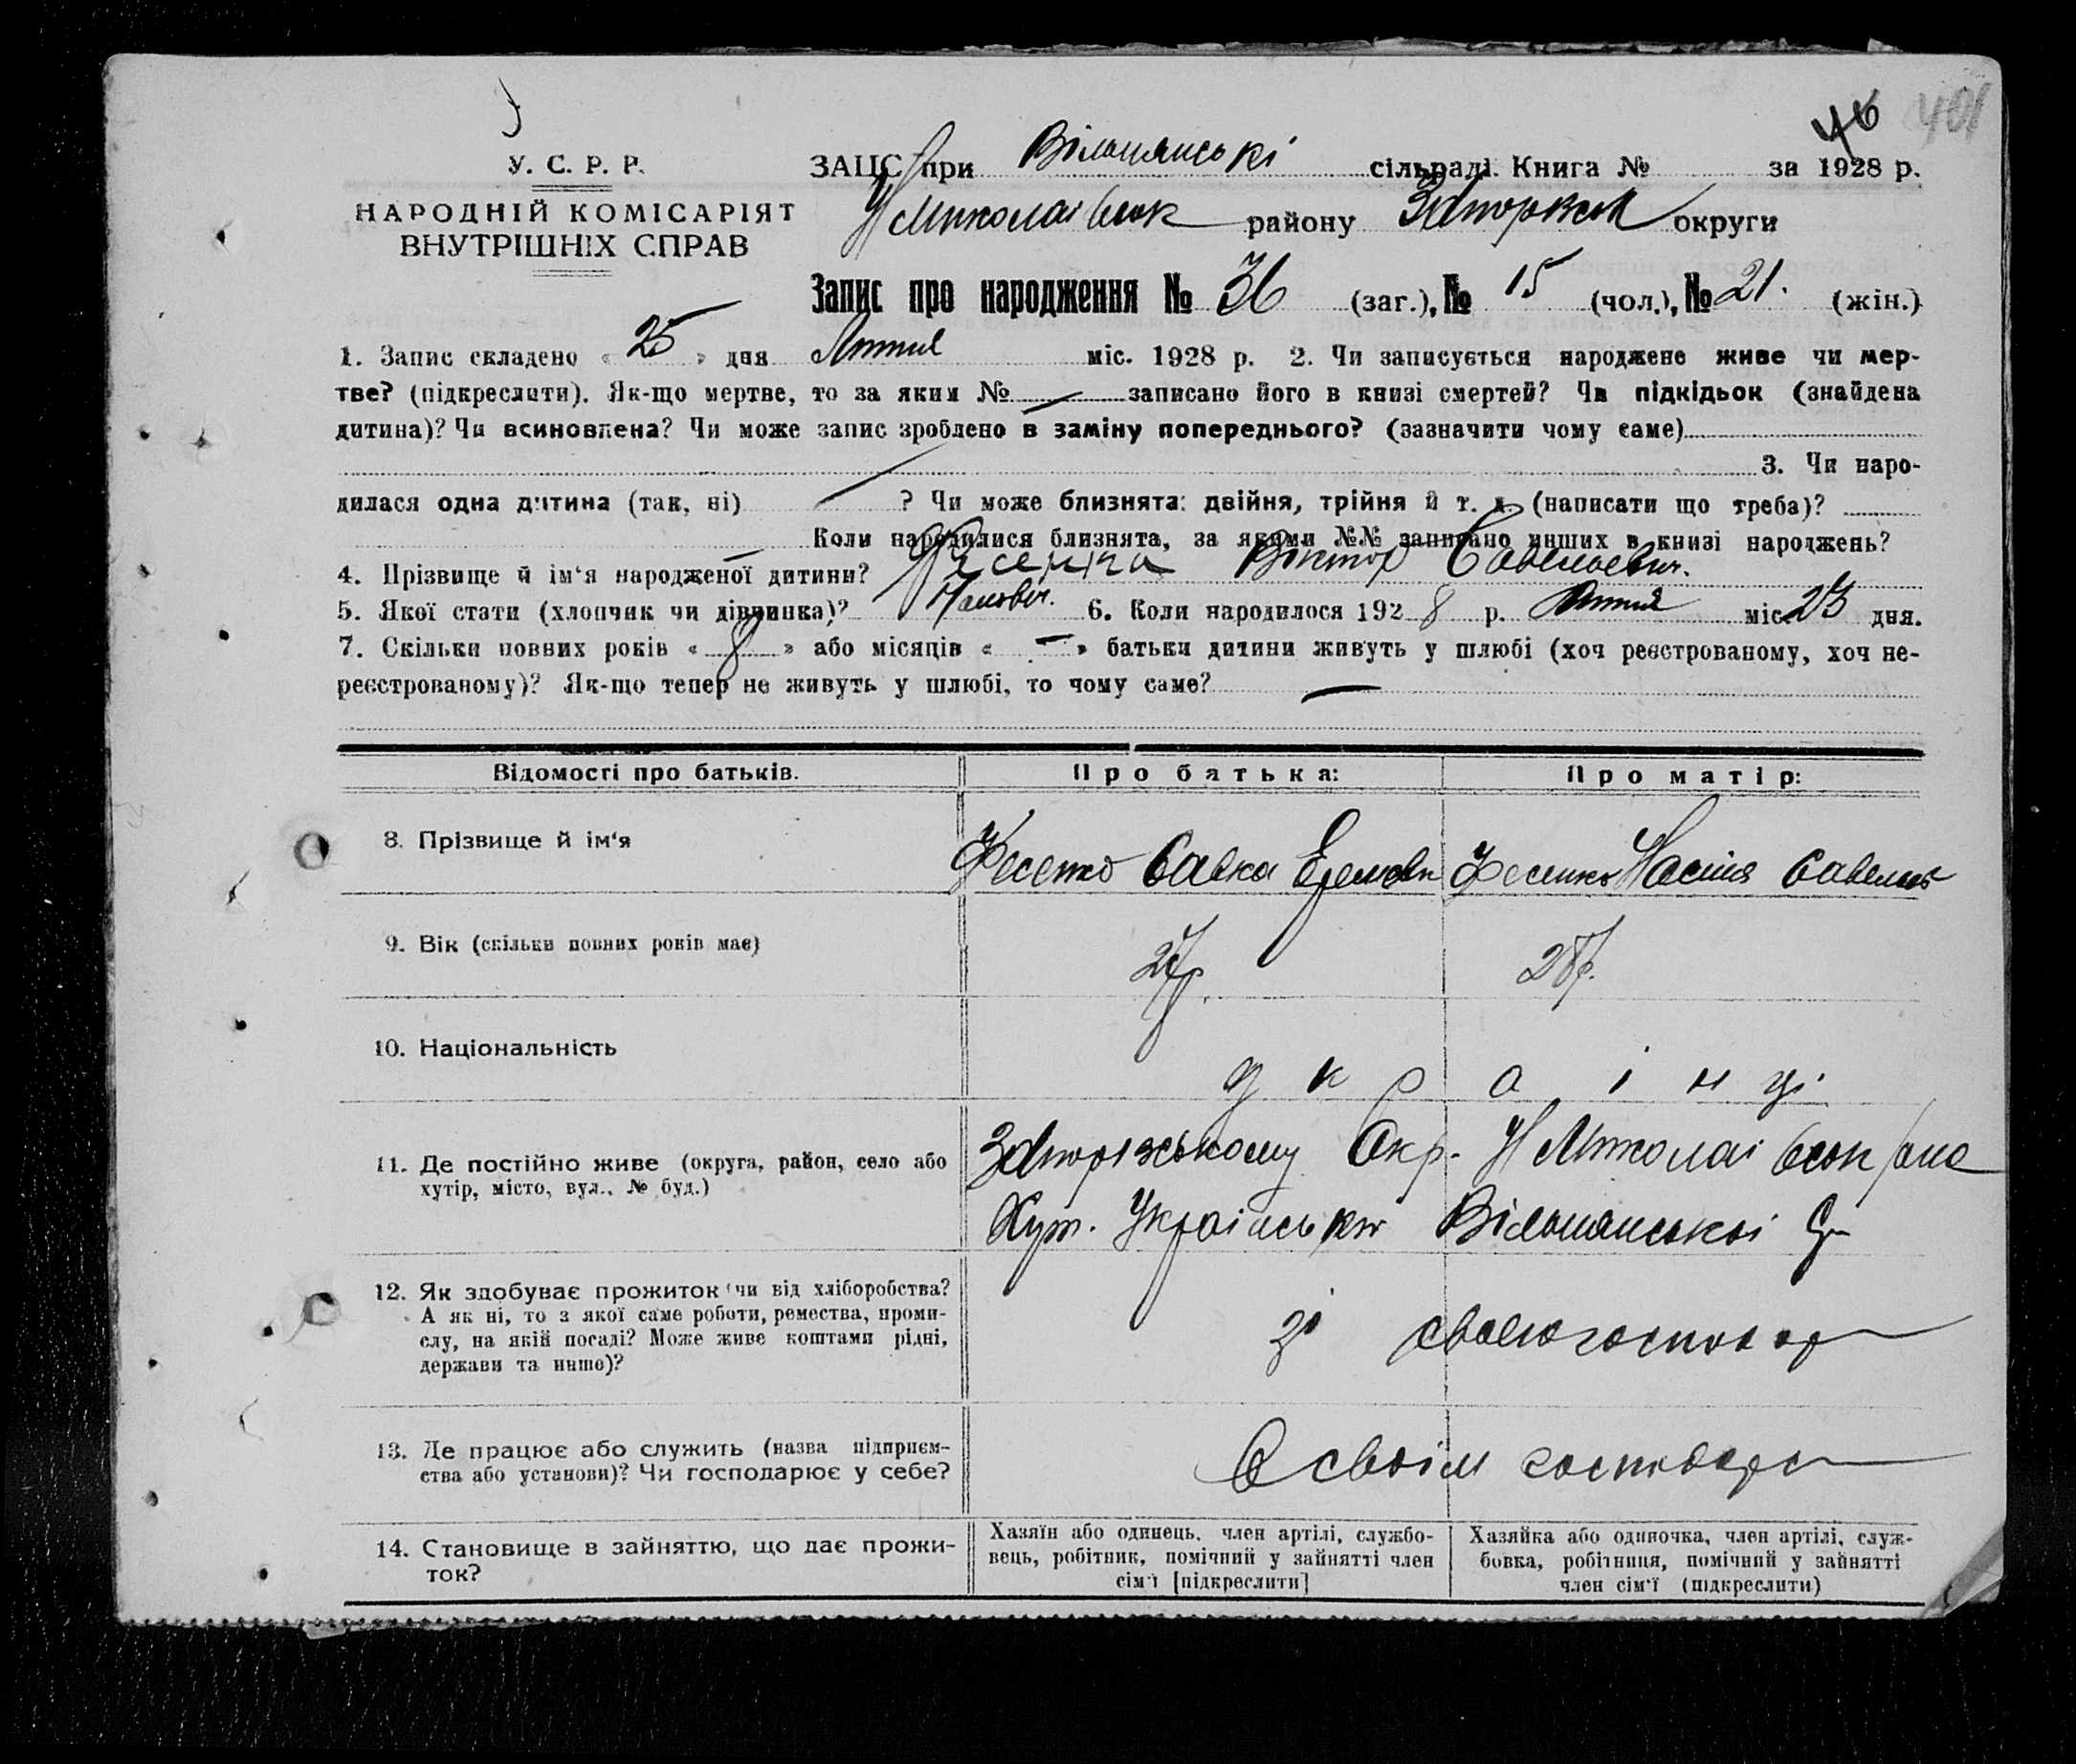 46 401
У. С. Р. Р.
НАРОДНІЙ КОМІСАРІЯТ
ВНУТРІШНІХ СПРАВ
ЗАЦС при Вільнянські сільраді. Книга № за 1928 р.
Н Миколаівськ району округи
Запис про народження № 36 (заг.), № 15 (чол.), № 21. (жін.)
1. Запис складено « 25 » дня міс. 1928 р. 2. Чи записується народжене живе чи мер-
тве? (підкреслити). Як-що мертве, то за яким № — записано його в книзі смертей? Чи підкідьок (знайдена
дитина)? Чи всиновлена? Чи може запис зроблено в заміну попереднього? (зазначити чому саме)
3. Чи наро-
дилася одна дитина (так, ні) ? Чи може близнята: двійня, трійня й т. д. (написати що треба)?
Коли народилися близнята, за якими №№ записано инших в книзі народжень?
4. Прізвище й ім‘я народженої дитини? Фесенко Віктор Савельевич.
5. Якої стати (хлопчик чи дівчинка)? 6. Коли народилося 1928 р. міс. 23 дня.
7. Скільки повних років « 8 » або місяців « — » батьки дитини живуть у шлюбі (хоч реєстрованому, хоч не-
реєстрованому)? Як-що тепер не живуть у шлюбі, то чому саме? —
Відомості про батьків. Про батька: Про матір:
8. Прізвище й ім‘я Фесенко Савка Фесенко Настя
9. Вік (скільки повних років має) 28р.
10. Національність украінці
11. Де постійно живе (округа, район, село або
хутір, місто, вул., № буд.)
Окр. Н Миколаівськ
Хут. Вільнянськоі
12. Як здобуває прожиток чи від хліборобства?
А як ні, то з якої саме роботи, ремества, проми-
слу, на якій посаді? Може живе коштами рідні,
держави та инше)?
зі свого господар
13. Де працює або служить (назва підприєм-
ства або установи)? Чи господарює у себе?
В своім господарс
14. Становище в зайняттю, що дає прожи-
ток?
Хазяїн або одинець, член артілі, службо-
вець, робітник, помічний у зайнятті член
сім‘ї [підкреслити]
Хазяйка або одиночка, член артілі, служ-
бовка, робітниця, помічний у зайнятті
член сім‘ї (підкреслити)